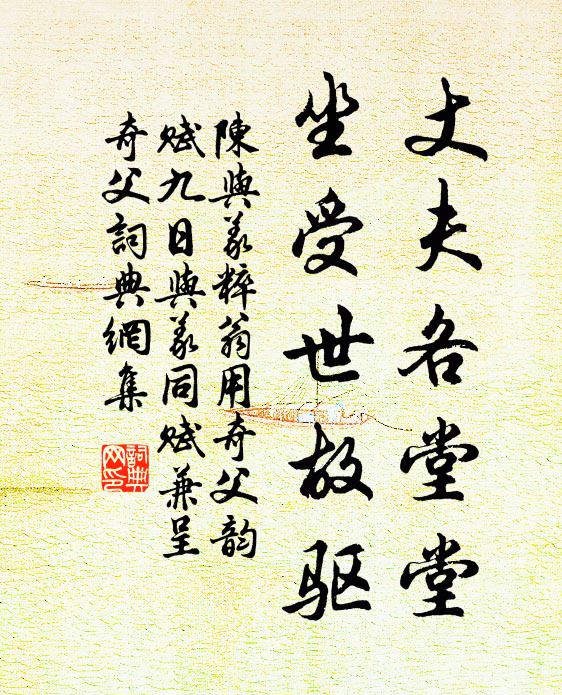 丈夫各堂堂
坐受世故驱
陳與義粹翁用奇父韵
赋九日與義同赋兼呈
奇父詞典網集
詞典
网印